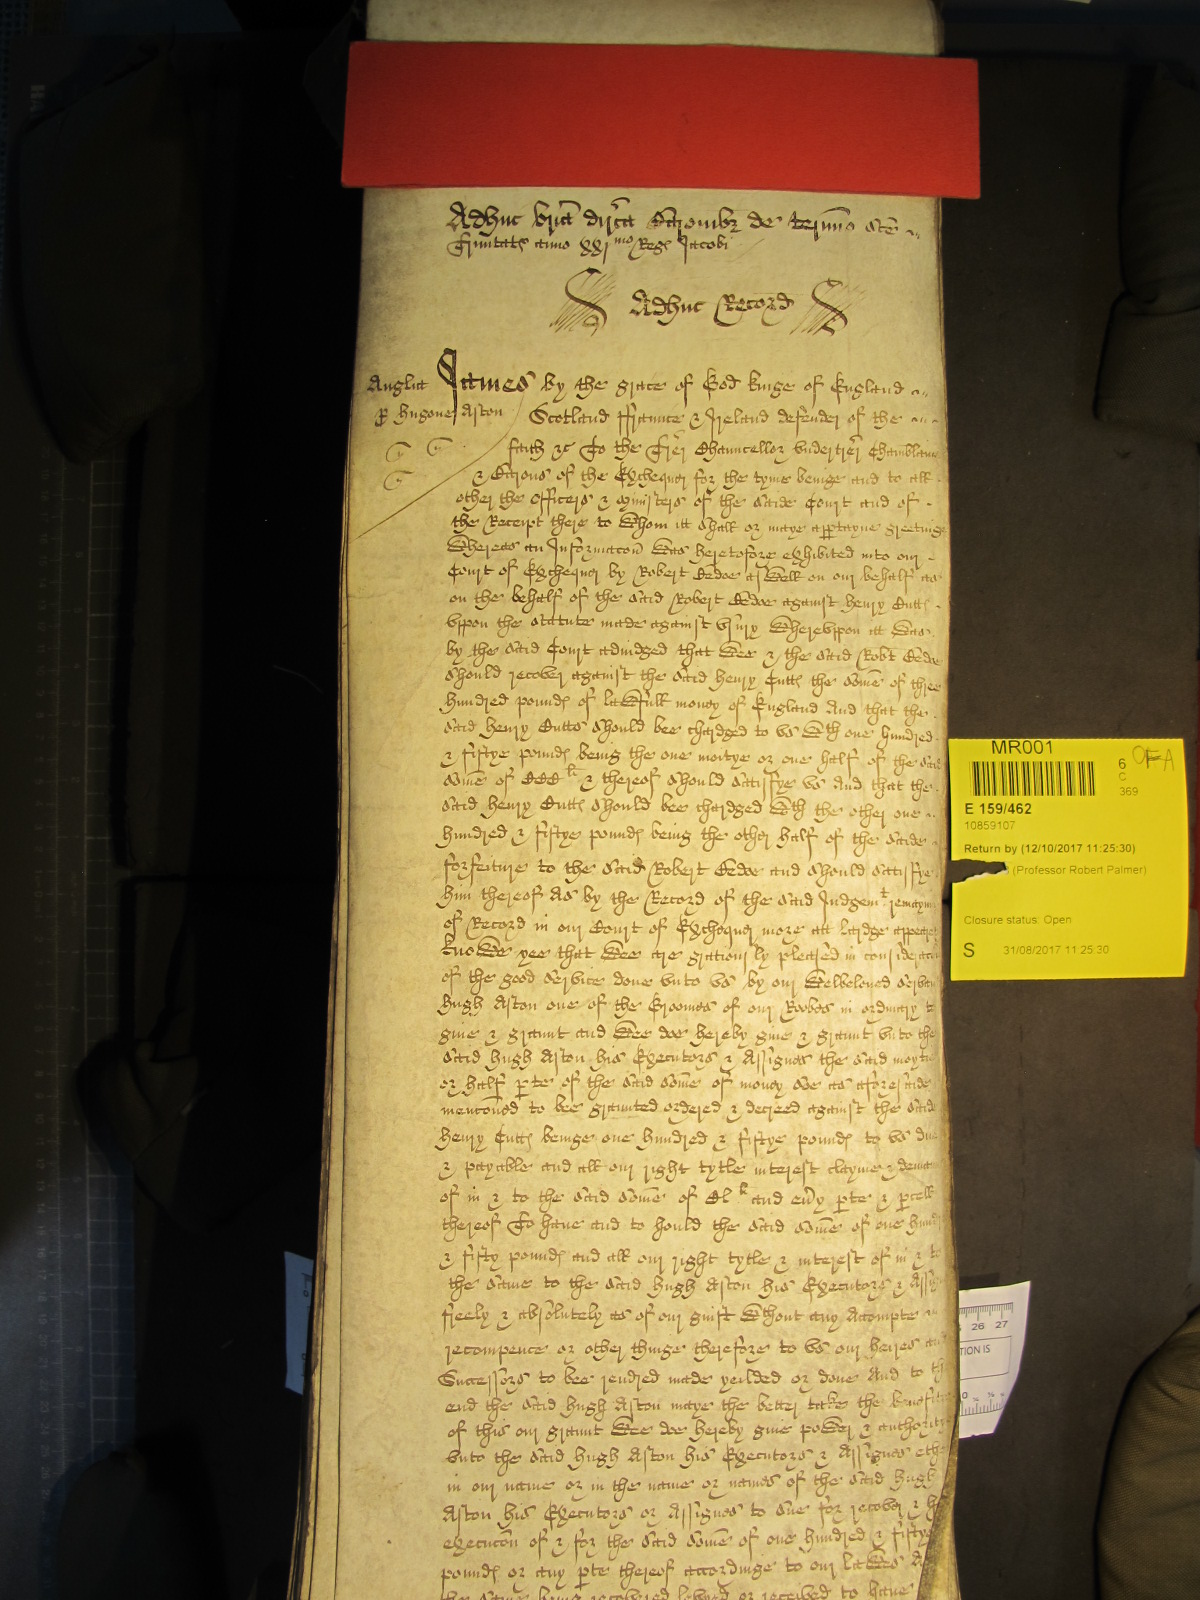 Adhuc bria dircta Baronibz de termino sce
Trinitatis anno xxjmo Regis Jacobi
Adhuc Record
Anglia James by the grace of God kinge of England
P Hugone Aston Scotland ffraunce & Ireland defender of the
faith &c To the Trer Chauncellor undertrer Chamblains
& Barons of the Exchequer for the tyme beinge and to all
other the Officers & ministers of the saide Court and of
the Receipt there to whom it shall or maye appertayne greetinge
Whereas an Informacon was heretofore exhibited into our
Court of Exchequer by Robert aswell on our behalf as
on the behalf of the said Robert against Henry Cutts
vppon the statute made against vsury Wherevppon it was
by the said Court adiudged that wee & the said Robt
should recover against the said Henry Cutts the some of three
hundred pounds of lawfull money of England And that the
said Henry Cutts should bee chardged to vs wth one hundred
& fiftye pounds being the one moitye or one half of the said
some of CCCli & thereof should satisfye vs And that the
said Henry Cutts should bee chardged wth the other one
hundred & fiftye pounds being the other half of the saide
forfeiture to the said Robert and should satisfye
him thereof As by the Record of the said Judgemt
of Record in our Court of Exchequer more att lardge
knowe yee that wee are graciously pleased in
of the good service done vnto vs by our welbeloved
Hugh Aston one of the Groomes of our Roobes in ordinary to
give & graunt and wee doe hereby give & graunt vnto the
said Hugh Aston his Executors & Assignes the said
or half pte of the said some of money soe as aforesaide
mencioned to bee graunted ordered & decreed against the saide
Henry Cutts beinge one hundred & fiftye pounds to vs due
& payable and all our right tytle interest clayme &
of in & to the said some of CLli and euy pte & pcell
thereof To haue and to hould the said some of one
& fifty pounds and all our right tytle & interest of in & to
the same to the said Hugh Aston his Executors &
freely & absolutely as of our guift wthout any Accompte
recompence or other thinge therefore to vs our heires
Successors to bee rendred made yeilded or done And to
end the said Hugh Aston maye the better take the
of this our graunt wee doe hereby give power &
vnto the said Hugh Aston his Executors & Assignes
in our name or in the name or names of the said Hugh
Aston his Executors or Assignes to sue for recover &
execucon of & for the said some of one hundred & fiftye
pounds or any pte thereof accordinge to our lawes
the same being recovered levyed or received to haue
MR001
6
C
369
OFA
E 159/462
10859107
Return by (12/10/2017 11:25:30)
(Professor Robert Palmer)
Closure status: Open
S 31/08/2017 11:25:30
26 27
TION IS